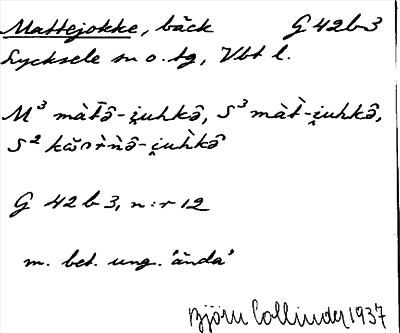 Mattejokke, bäck G 42 b 3
Lycksele sn o. tg, Vbt l.
M³ màt̄ô-i̯uhkô, S³ màt̀-i̯uhkô,
S²
G 42 b 3, n:r 12
m. bet. ung. 'ända'
Björn Collinder 1937